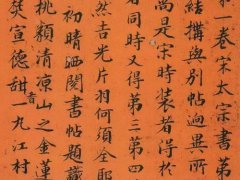 第一卷宋太宗書
結搆與別帖迥異所
尚是宋時裝者得於
者同時又得第二第四
然吉光片羽何須全
初晴洒閱書帖題識
桃穎清凉山之金蓮
宣德甜一九江村